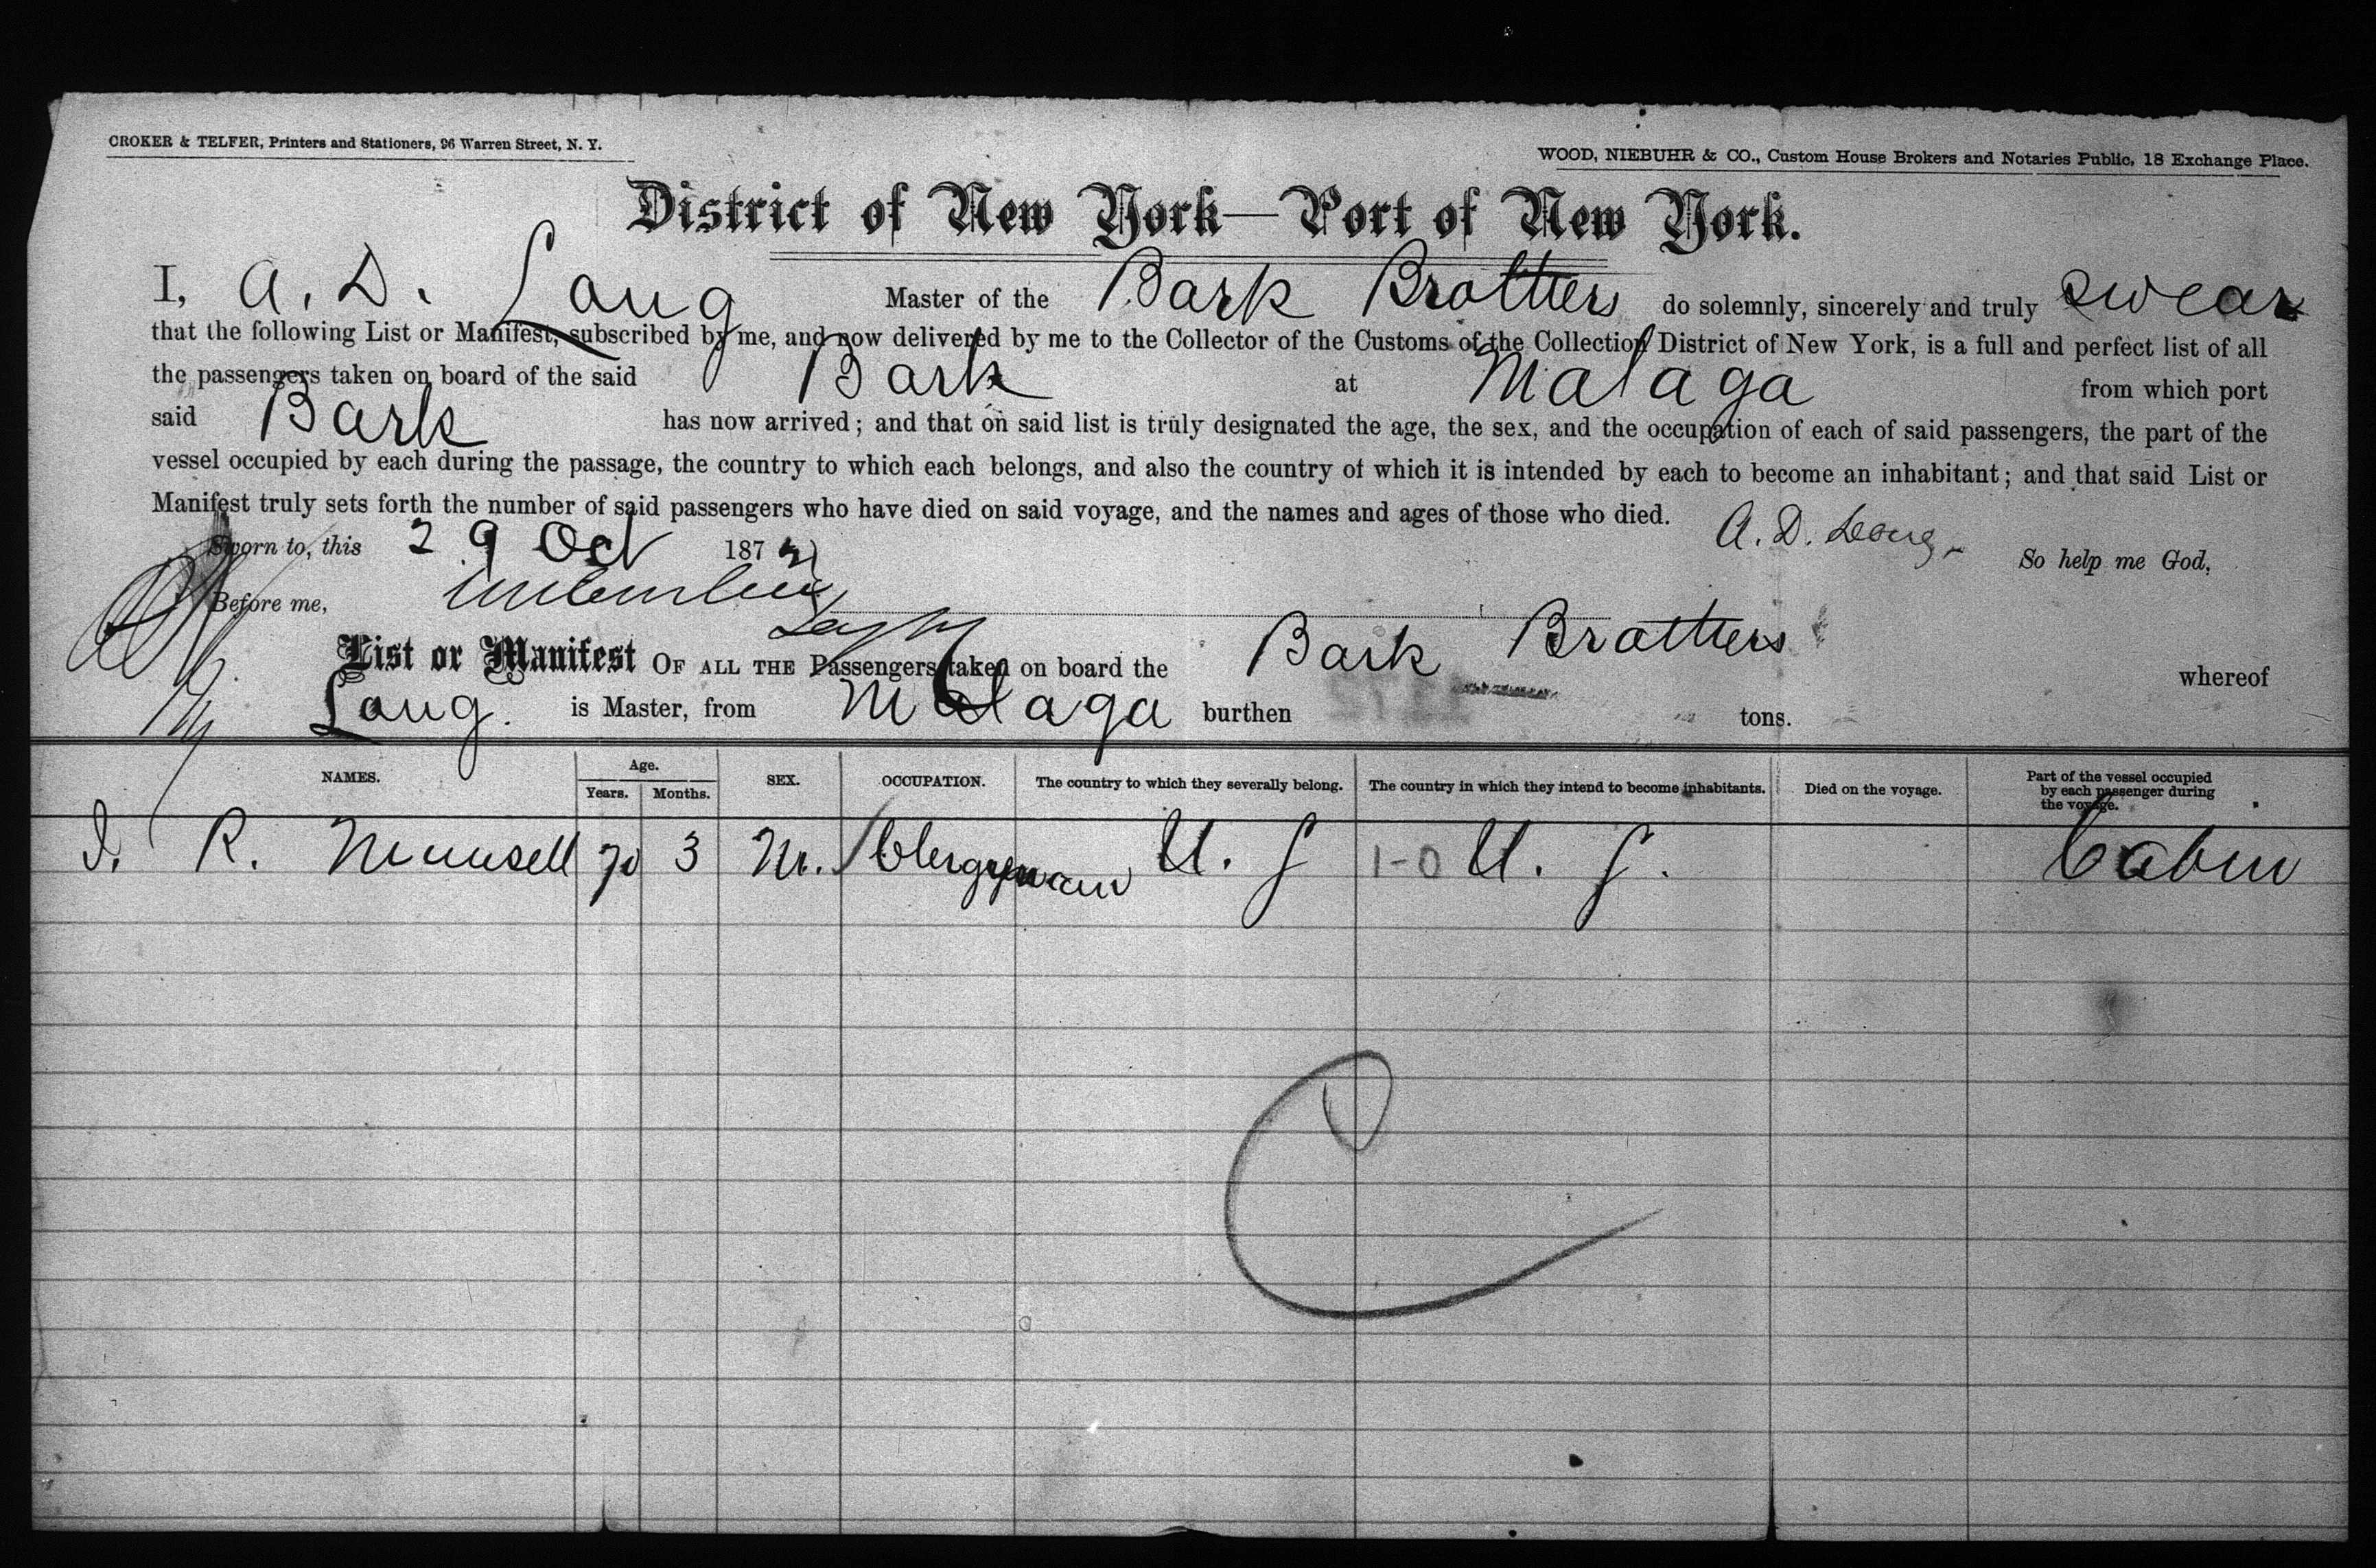 CROKER & TELFER, Printers and Stationers, 96 Warren Street, N. Y.
WOOD, NIEBUHR & CO., Custom House Brokers and Notaries Public, 18 Exchange Place.
District of New York—Port of New York.
I, A. D. Long Master of the Bark Brothers do solemnly, sincerely and truly swear
that the following List or Manifest, subscribed by me, and now delivered by me to the Collector of the Customs of the Collection District of New York, is a full and perfect list of all
the passengers taken on board of the said Bark at Malaga from which port
said Bark has now arrived; and that on said list is truly designated the age, the sex, and the occupation of each of said passengers, the part of the
vessel occupied by each during the passage, the country to which each belongs, and also the country of which it is intended by each to become an inhabitant; and that said List or
Manifest truly sets forth the number of said passengers who have died on said voyage, and the names and ages of those who died.
A. D. Long
Sworn to, this 29 Oct 187
So help me God,
Before me,
List or Manifest OF ALL THE Passengers taken on board the Bark Brothers whereof
Long. is Master, from Malaga burthen tons.
NAMES. Age. Years. Months. SEX. OCCUPATION. The country to which they severally belong. The country in which they intend to become inhabitants. Died on the voyage. Part of the vessel occupied by each passenger during the voyage.
R. Munsell 70 3 M. Clergyman U. S 1-0 U. S. Cabin